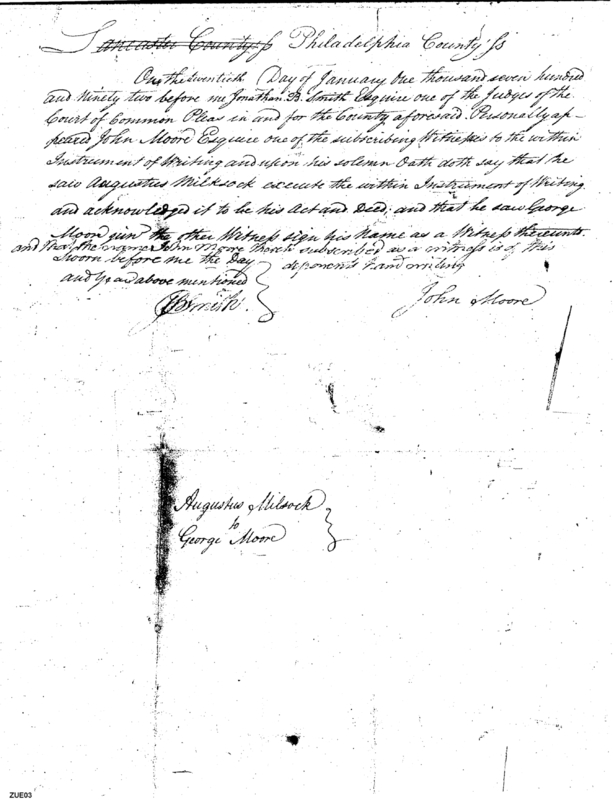 Lancaster County ss Philadelphia County ss
On the twentieth Day of January One thousand seven hundred
and Ninety two before me Jonathan B. Smith Esquire one of the Judges of the
Court of Common Pleas in and for the County aforesaid. Personally ap-
peared John Moore Esquire one of the subscribing Witnesses to the within
Instrument of Writing and upon his solemn Oath doth say that he
saw Augustus Milksock execute the within Instrument of Writing
and acknowledged it to be his Act and Deed: and that he saw George
Moore junr. the other Witness sign his Name as a Witness thereunto
and that the name John Moore thereto subscribed as a witness is of this
deponents hand writing
Sworn before me the Day
and Year above mentioned
JBSmith
John Moore
Augustus Milsock
to
George Moore
ZUE03